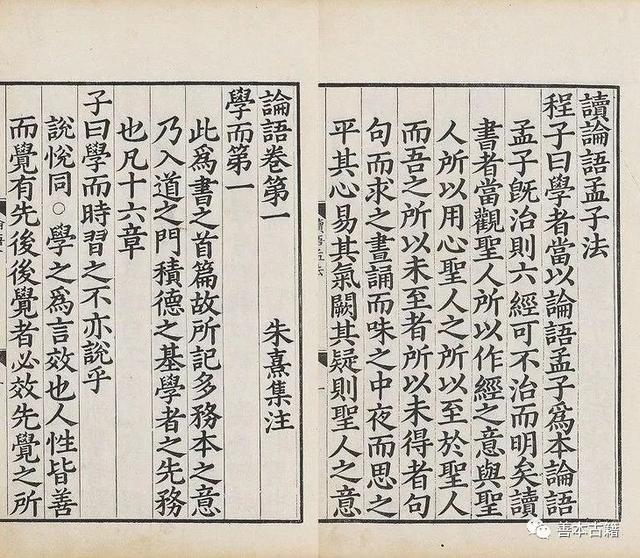 讀論語孟子法
程子曰學者當以論語孟子爲本論語
孟子旣治則六經可不治而明矣讀
書者當觀聖人所以作經之意與聖
人所以用心聖人之所以至於聖人
而吾之所以未至者所以未得者句
句而求之晝誦而味之中夜而思之
平其心易其氣闕其疑則聖人之意
論語卷第一 朱熹集注
學而第一
此爲書之首篇故所記多務本之意
乃入道之門積德之基學者之先務
也凡十六章
子曰學而時習之不亦說乎
說悅同○學之爲言效也人性皆善
而覺有先後後覺者必效先覺之所
善本古籍